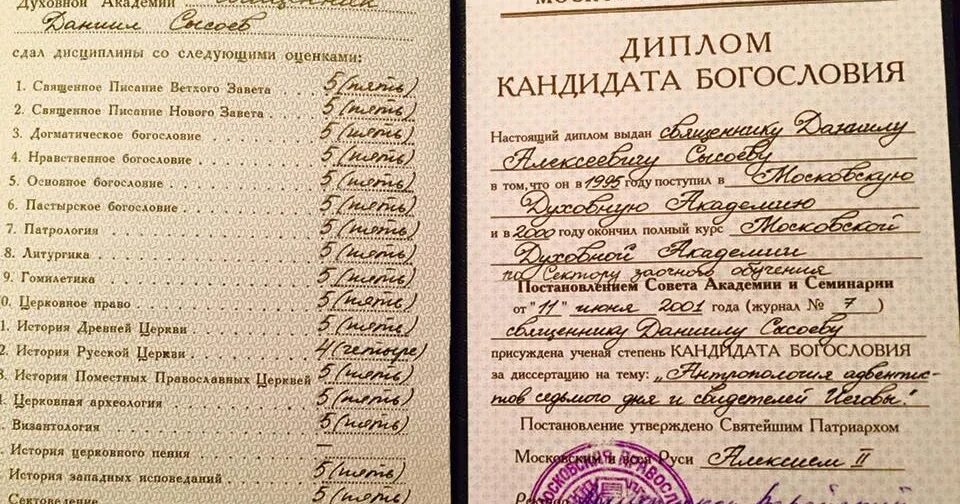 Духовной Академии священник
Даниил Сысоев
сдал дисциплины со следующими оценками:
1. Священное Писание Ветхого Завета 5 (пять)
2. Священное Писание Нового Завета 5 (пять)
3. Догматическое богословие 5 (пять)
4. Нравственное богословие 5 (пять)
5. Основное богословие 5 (пять)
6. Пастырское богословие 5 (пять)
7. Патрология 5 (пять)
8. Литургика 5 (пять)
9. Гомилетика 5 (пять)
0. Церковное право 5 (пять)
1. История Древней Церкви 5 (пять)
2. История Русской Церкви 4 (четыре)
3 История Поместных Православных Церквей 5 (пять)
4. Церковная археология 5 (пять)
. Византология 5 (пять)
История церковного пения —
История западных исповеданий 5 (пять)
Сектоведение 5 (пять)
ДИПЛОМ
КАНДИДАТА БОГОСЛОВИЯ
Настоящий диплом выдан священнику Даниилу
Алексеевичу Сысоеву
в том, что он в 1995 году поступил в Московскую
Духовную Академию
и в 2000 году окончил полный курс Московской
Духовной Академии
по Сектору заочного обучения
Постановлением Совета Академии и Семинарии
от "11" июня 2001 года (журнал № 7 )
священнику Даниилу Сысоеву
присуждена ученая степень КАНДИДАТА БОГОСЛОВИЯ
за диссертацию на тему: „Антропология адвентис-
тов седьмого дня и свидетелей Иеговы."
Постановление утверждено Святейшим Патриархом
Московским и всея Руси Алексием II